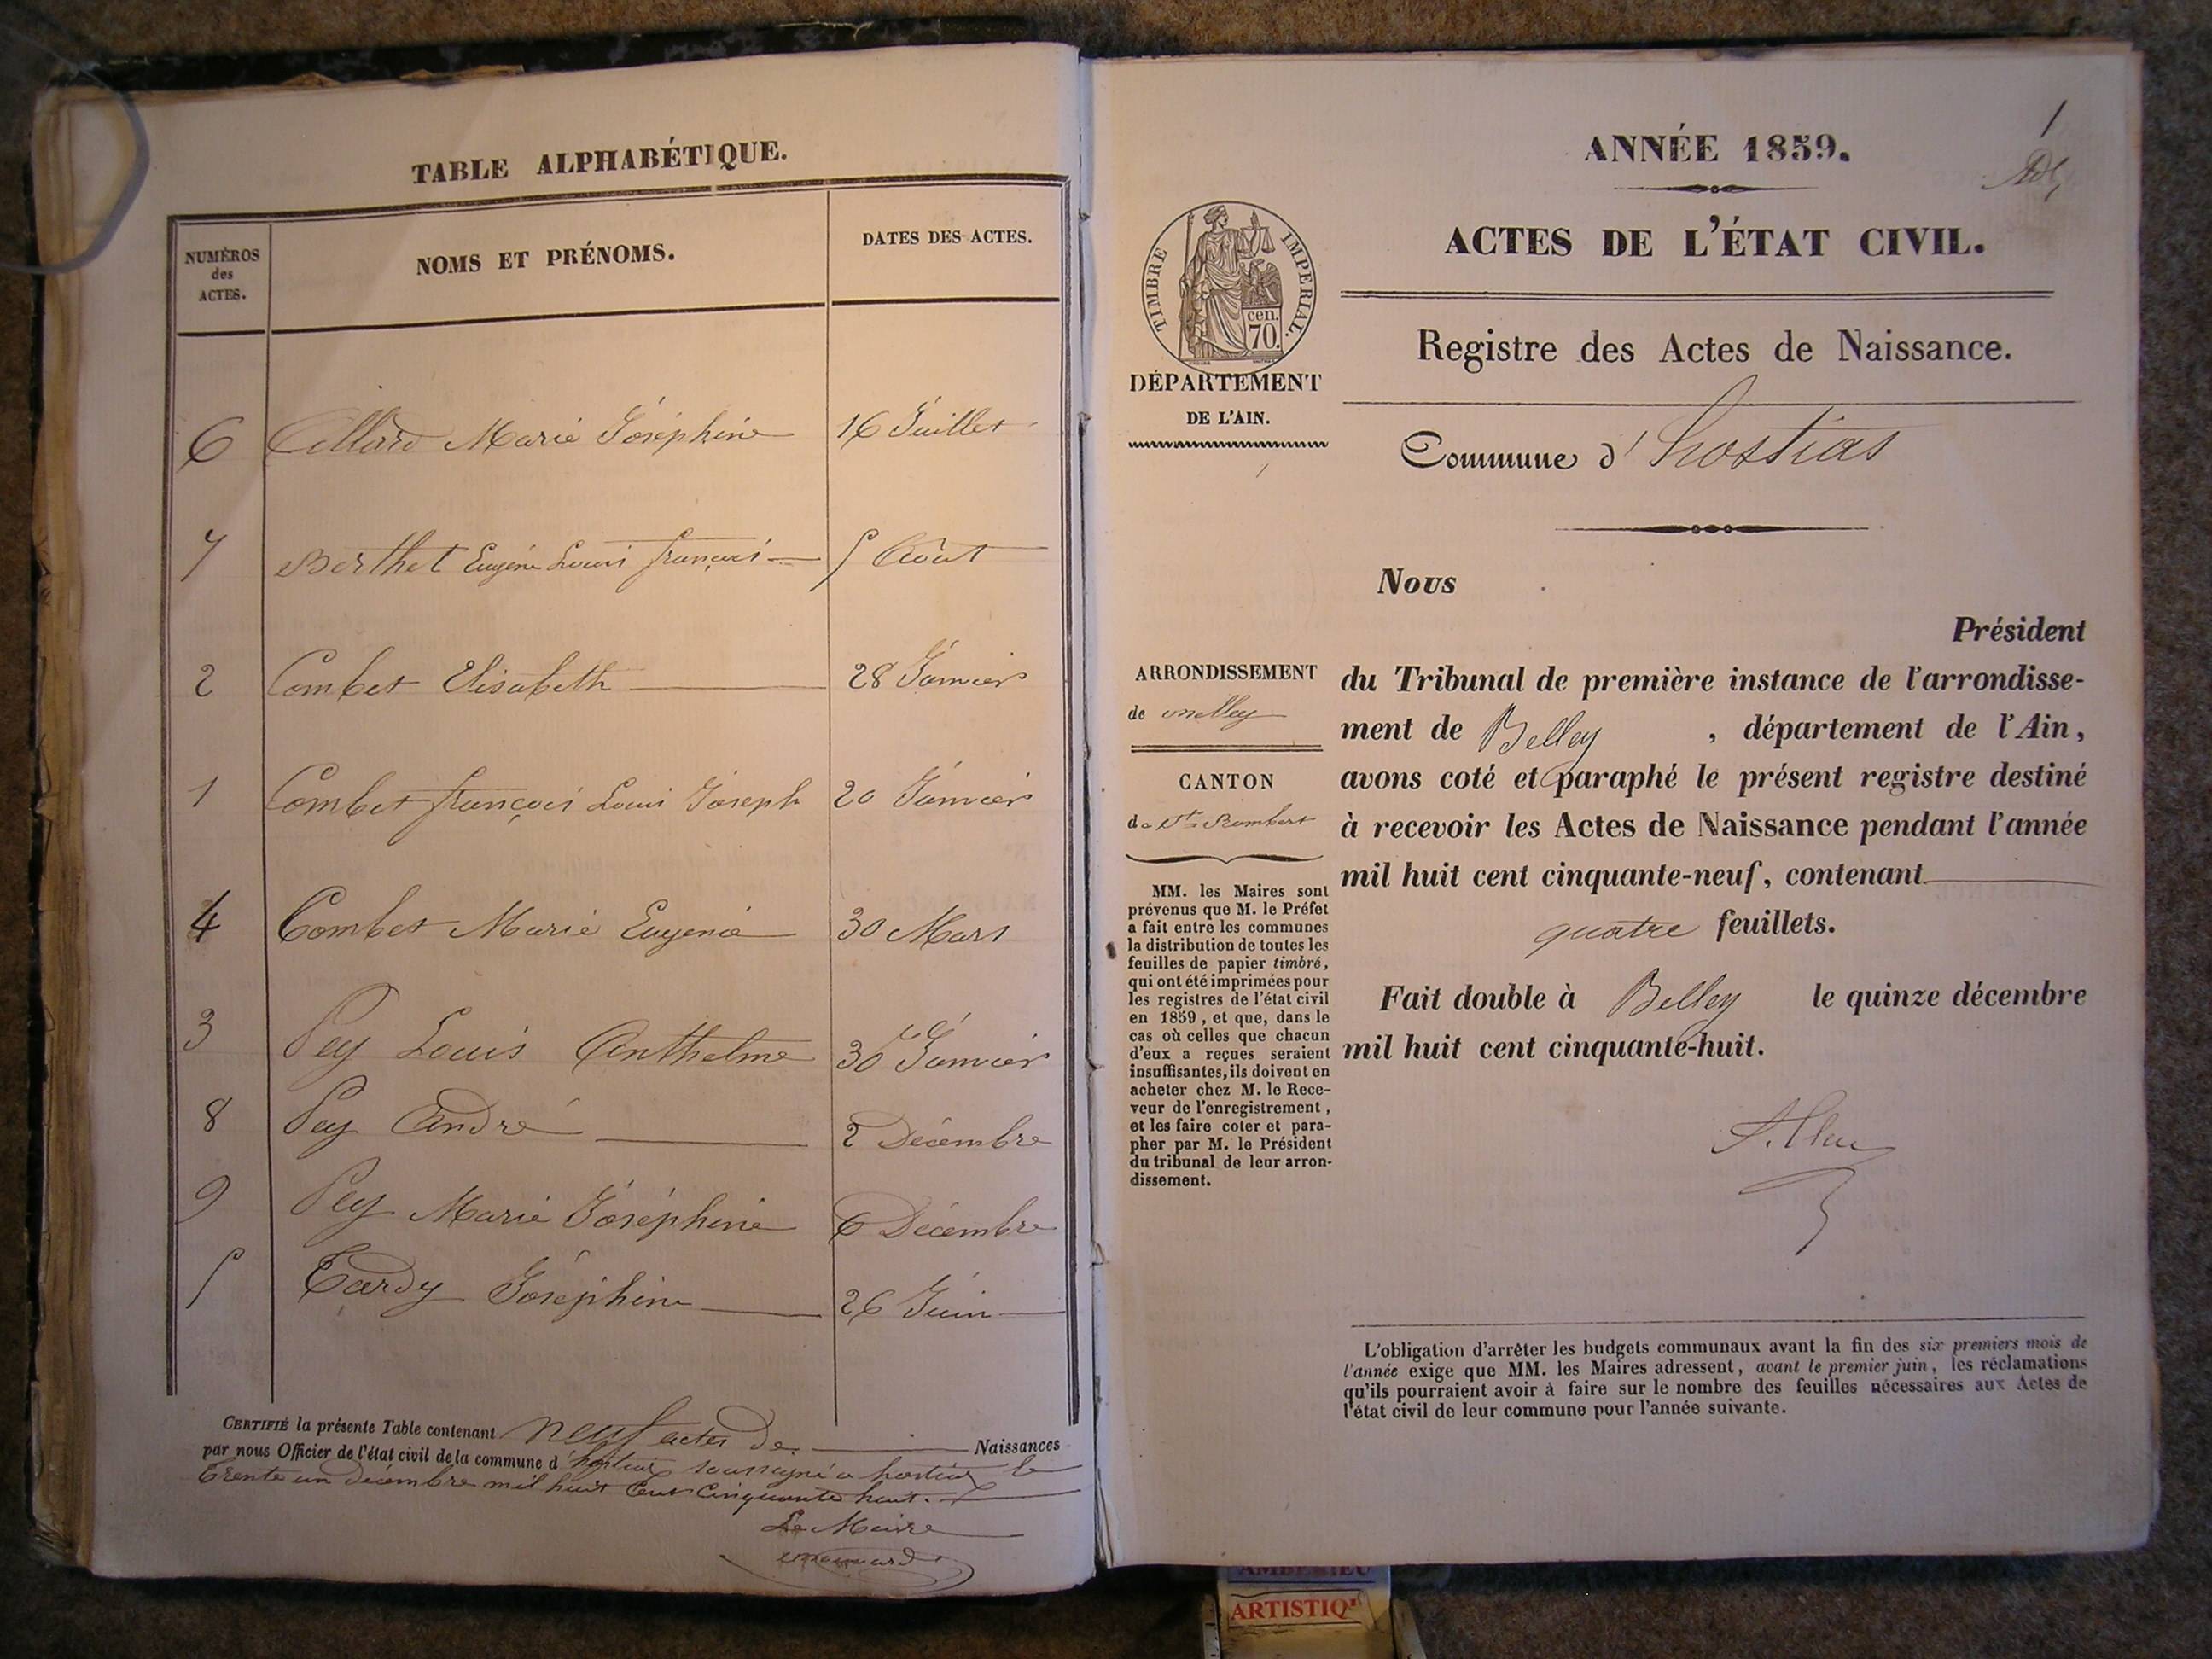 TABLE ALPHABÉTIQUE.
NUMÉROS
des
ACTES.
NOMS ET PRÉNOMS.
DATES DES ACTES.
6 Marie Joséphine 16 Juillet
7 Berthet Eugène Louis françois 5 Août
2 Combet Elisabeth 28 Janvier
1 Combet françois Louis Joseph 20 Janvier
4 Combet Marie Eugenie 30 Mars
3 Pey Louis Anthelme 30 Janvier
8 Pey André 2 Décembre
9 Pey Marie Joséphine 6 Décembre
5 Tardy Joséphine 26 Juin
CERTIFIÉ la présente Table contenant neuf actes de Naissances
par nous Officier de l'état civil de la commune d'hostias soussigné a hostias le
trente un Décembre mil huit Cent Cinquante huit.
Le Maire
1
ANNÉE 1859.
ACTES DE L'ÉTAT CIVIL.
TIMBRE IMPERIAL.
cen.
70.
DÉPARTEMENT
DE L'AIN.
Registre des Actes de Naissance.
Commune d'hostias
ARRONDISSEMENT
de Belley
CANTON
de St Rambert
MM. les Maires sont
prévenus que M. le Préfet
a fait entre les communes
la distribution de toutes les
feuilles de papier timbré,
qui ont été imprimées pour
les registres de l'état civil
en 1859, et que, dans le
cas où celles que chacun
d'eux a reçues seraient
insuffisantes, ils doivent en
acheter chez M. le Rece-
veur de l'enregistrement,
et les faire coter et para-
pher par M. le Président
du tribunal de leur arron-
dissement.
Nous
Président
du Tribunal de première instance de l'arrondisse-
ment de Belley, département de l'Ain,
avons coté et paraphé le présent registre destiné
à recevoir les Actes de Naissance pendant l'année
mil huit cent cinquante-neuf, contenant
quatre feuillets.
Fait double à Belley le quinze décembre
mil huit cent cinquante-huit.
L'obligation d'arrêter les budgets communaux avant la fin des six premiers mois de
l'année exige que MM. les Maires adressent, avant le premier juin, les réclamations
qu'ils pourraient avoir à faire sur le nombre des feuilles nécessaires aux Actes de
l'état civil de leur commune pour l'année suivante.
AMBERIEU
ARTISTIQ